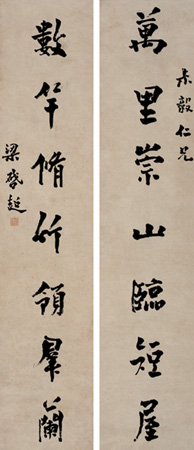 未毅仁兄
萬里崇山臨短屋
數竿脩竹領羣蘭
梁啓超